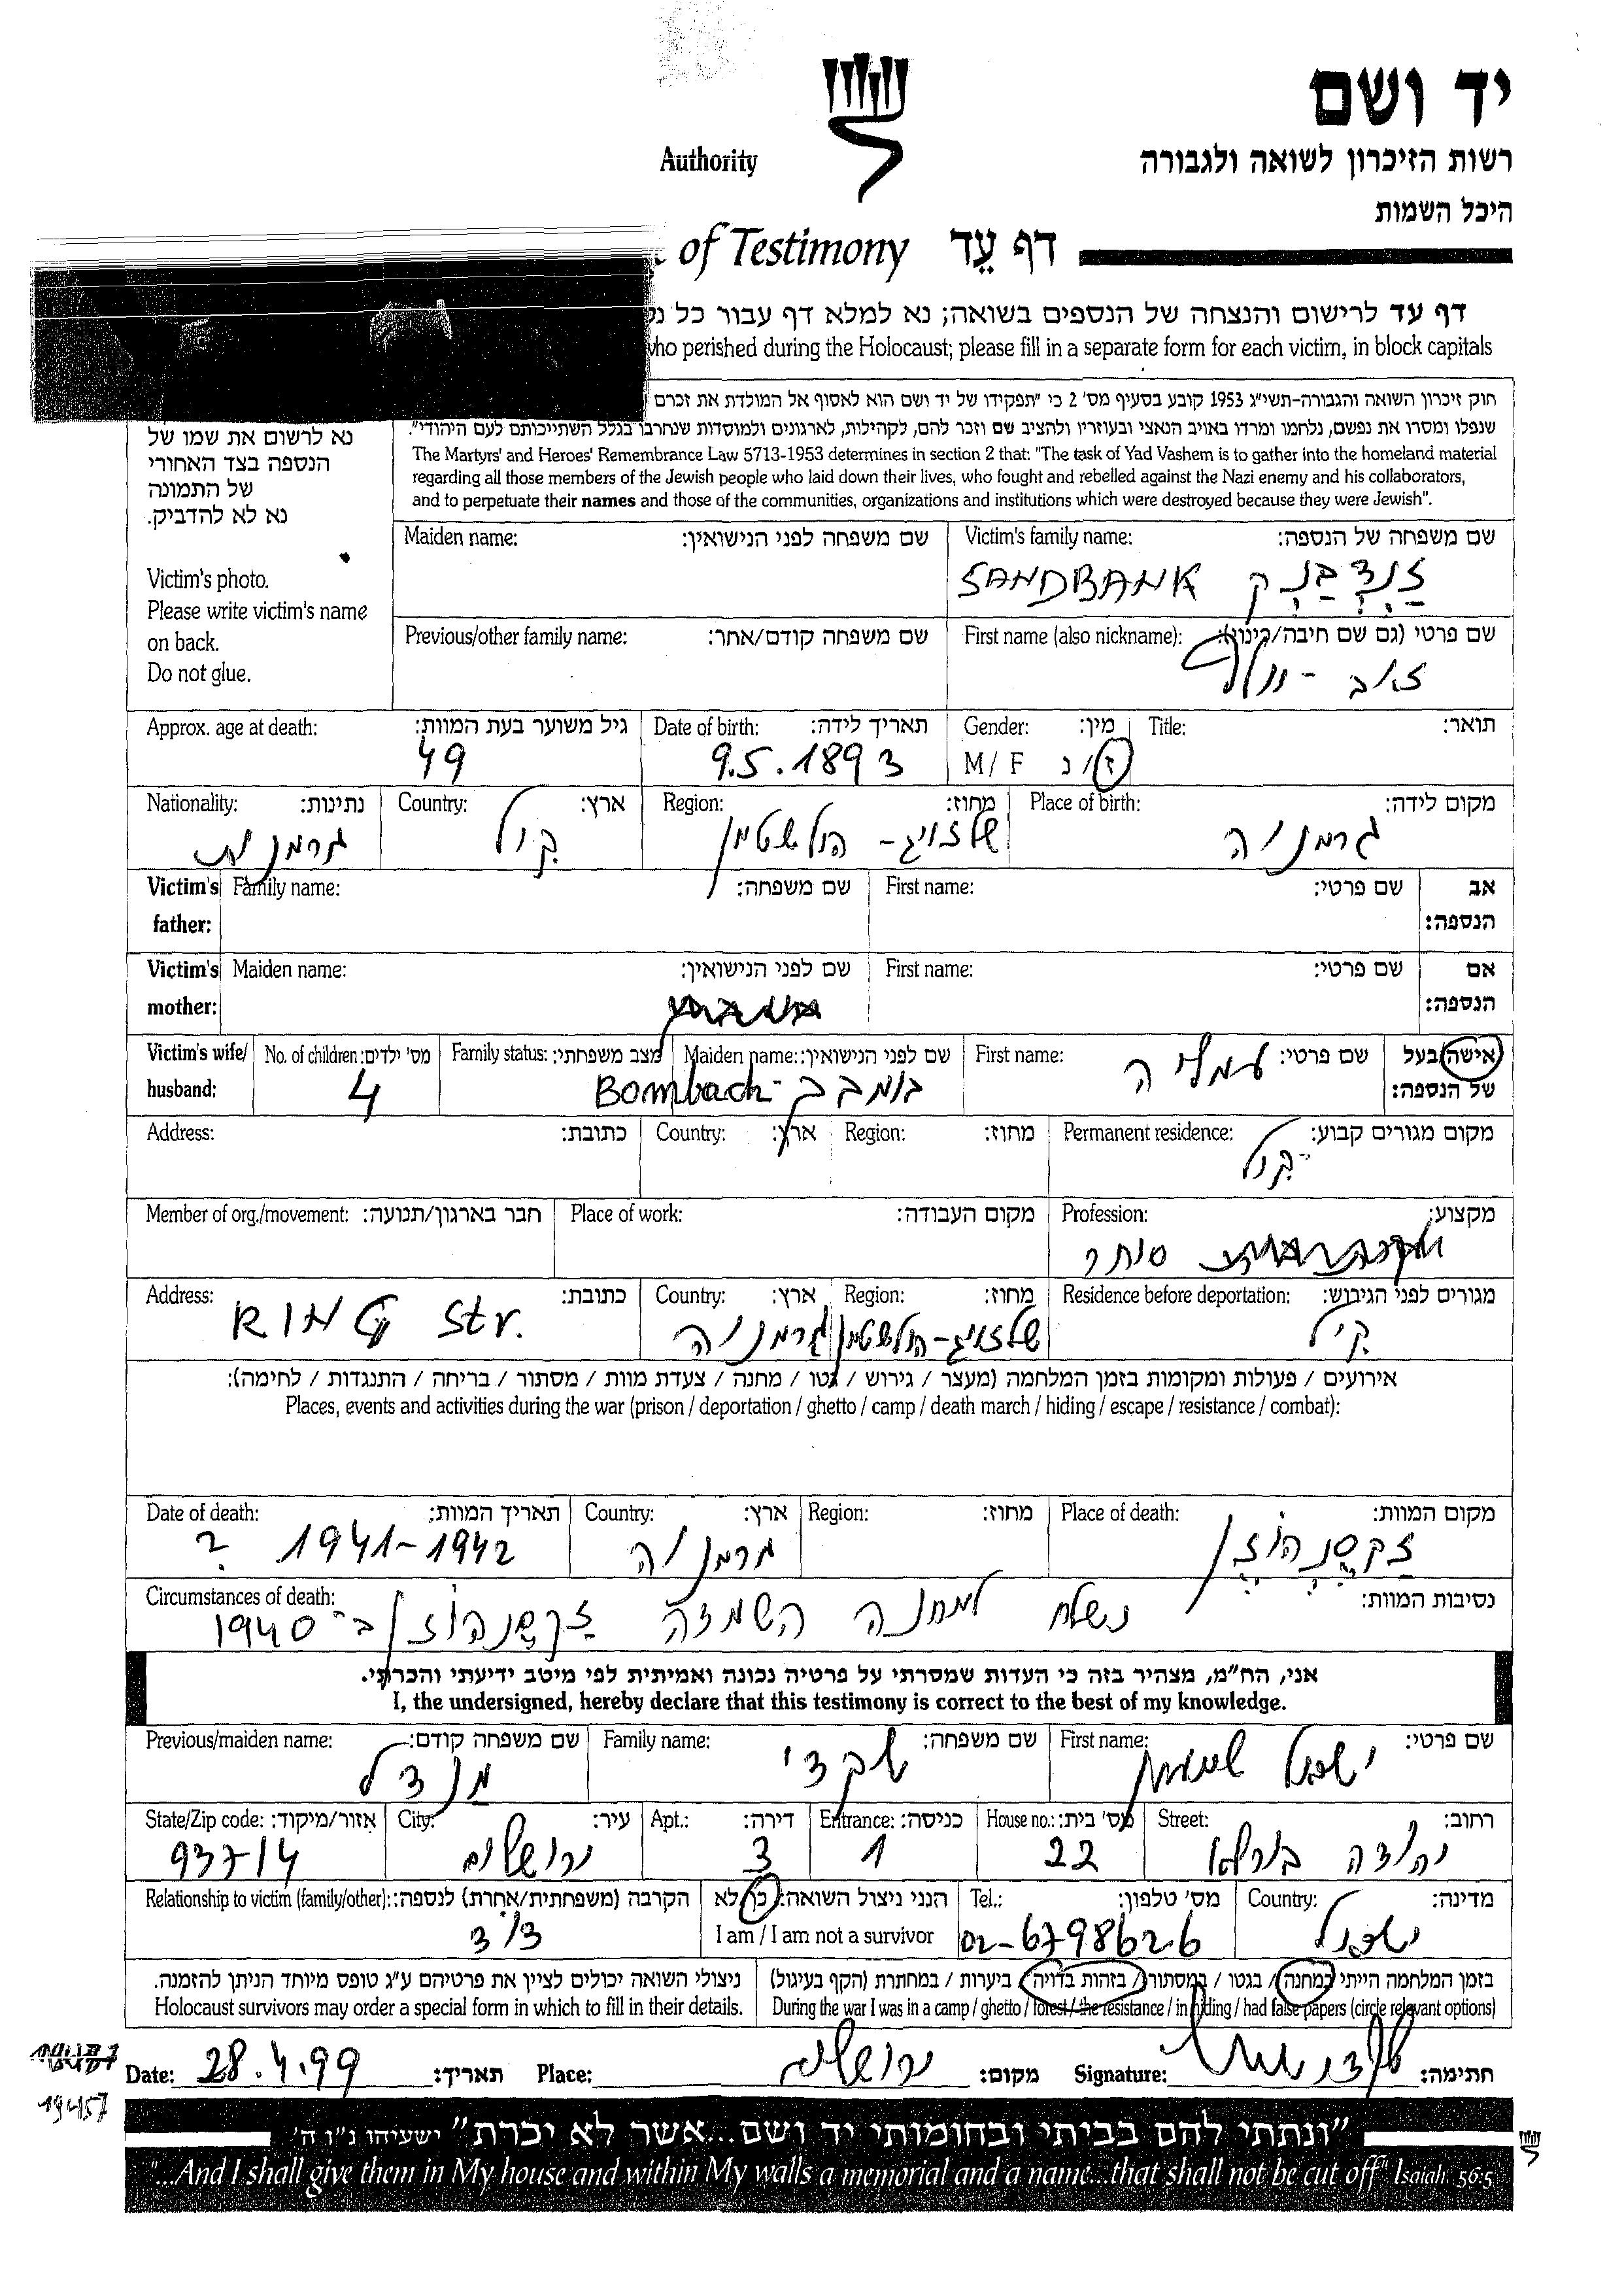 יד ושם
רשות הזיכרון לשואה ולגבורה
Authority
היכל השמות
of Testimony דף עֵד
דף עד לרישום והנצחה של הנספים בשואה; נא למלא דף עבור כל
who perished during the Holocaust; please fill in a separate form for each victim, in block capitals
חוק זיכרון השואה והגבורה-תשי"ג 1953 קובע בסעיף מס' 2 כי "תפקידו של יד ושם הוא לאסוף אל המולדת את זכרם
שנפלו ומסרו את נפשם, נלחמו ומרדו באויב הנאצי ובעוזריו ולהציב שם וזכר להם, לקהילות, לארגונים ולמוסדות שנחרבו בגלל השתייכותם לעם היהודי".
The Martyrs' and Heroes' Remembrance Law 5713-1953 determines in section 2 that: "The task of Yad Vashem is to gather into the homeland material
regarding all those members of the Jewish people who laid down their lives, who fought and rebelled against the Nazi enemy and his collaborators,
and to perpetuate their names and those of the communities, organizations and institutions which were destroyed because they were Jewish".
נא לרשום את שמו של
הנספה בצד האחורי
של התמונה
נא לא להדביק.
Victim's photo.
Please write victim's name
on back.
Do not glue.
שם משפחה של הנספה: Victim's family name:
זַנְדְבַּנְק SANDBANK
שם משפחה לפני הנישואין: Maiden name:
שם פרטי (גם שם חיבה/כינוי): First name (also nickname):
זאב - וולף
שם משפחה קודם/אחר: Previous/other family name:
תואר: Title:
מין: Gender:
ז/נ M/F
תאריך לידה: Date of birth:
9.5.1893
גיל משוער בעת המוות: Approx. age at death:
49
מקום לידה: Place of birth:
גרמניה
מחוז: Region:
שלזויג - הולשטיין
ארץ: Country:
קיל
נתינות: Nationality:
גרמנית
אב הנספה: Victim's father:
שם פרטי: First name:
שם משפחה: Family name:
אם הנספה: Victim's mother:
שם פרטי: First name:
שם לפני הנישואין: Maiden name:
אישה/בעל של הנספה: Victim's wife/husband:
שם פרטי: First name:
עמליה
שם לפני הנישואין: Maiden name:
בומבך - Bombach
מצב משפחתי: Family status:
מס' ילדים: No. of children:
4
מקום מגורים קבוע: Permanent residence:
קיל
מחוז: Region:
ארץ: Country:
כתובת: Address:
מקצוע: Profession:
סוחר
מקום העבודה: Place of work:
חבר בארגון/תנועה: Member of org./movement:
מגורים לפני הגיבוש: Residence before deportation:
קיל
מחוז: Region:
שלזויג-הולשטיין
ארץ: Country:
גרמניה
כתובת: Address:
RING Str.
אירועים / פעולות ומקומות בזמן המלחמה (מעצר / גירוש / גטו / מחנה / צעדת מוות / מסתור / בריחה / התנגדות / לחימה):
Places, events and activities during the war (prison / deportation / ghetto / camp / death march / hiding / escape / resistance / combat):
מקום המוות: Place of death:
זַקְסֶנְהוֹזֶן
מחוז: Region:
ארץ: Country:
גרמניה
תאריך המוות: Date of death:
1941-1942 ?
נסיבות המוות: Circumstances of death:
נשלח למחנה השמדה זַקְסֶנְהוֹזֶן ב-1940
אני, הח"מ, מצהיר בזה כי העדות שמסרתי על פרטיה נכונה ואמיתית לפי מיטב ידיעתי והכרתי.
I, the undersigned, hereby declare that this testimony is correct to the best of my knowledge.
שם פרטי: First name:
ישראל
שם משפחה: Family name:
שקדי
שם משפחה קודם: Previous/maiden name:
מנדל
רחוב: Street:
יהודה בורלא
מס' בית: House no.:
22
כניסה: Entrance:
1
דירה: Apt.:
3
עיר: City:
ירושלים
אזור/מיקוד: State/Zip code:
93714
מדינה: Country:
ישראל
מס' טלפון: Tel.:
02-6798626
הנני ניצול השואה: כן/לא
I am / I am not a survivor
הקרבה (משפחתית/אחרת) לנספה: Relationship to victim (family/other):
דוד
בזמן המלחמה הייתי במחנה / בגטו / במסתור / בזהות בדויה / ביערות / במחתרת (הקף בעיגול)
During the war I was in a camp / ghetto / forest / the resistance / in hiding / had false papers (circle relevant options)
ניצולי השואה יכולים לציין את פרטיהם ע"ג טופס מיוחד הניתן להזמנה.
Holocaust survivors may order a special form in which to fill in their details.
חתימה: Signature:
מקום: Place:
ירושלים
תאריך: Date:
28.4.99
19457
"ונתתי להם בביתי ובחומותי יד ושם...אשר לא יכרת" ישעיהו נ"ו ה'
"...And I shall give them in My house and within My walls a memorial and a name...that shall not be cut off" Isaiah, 56:5